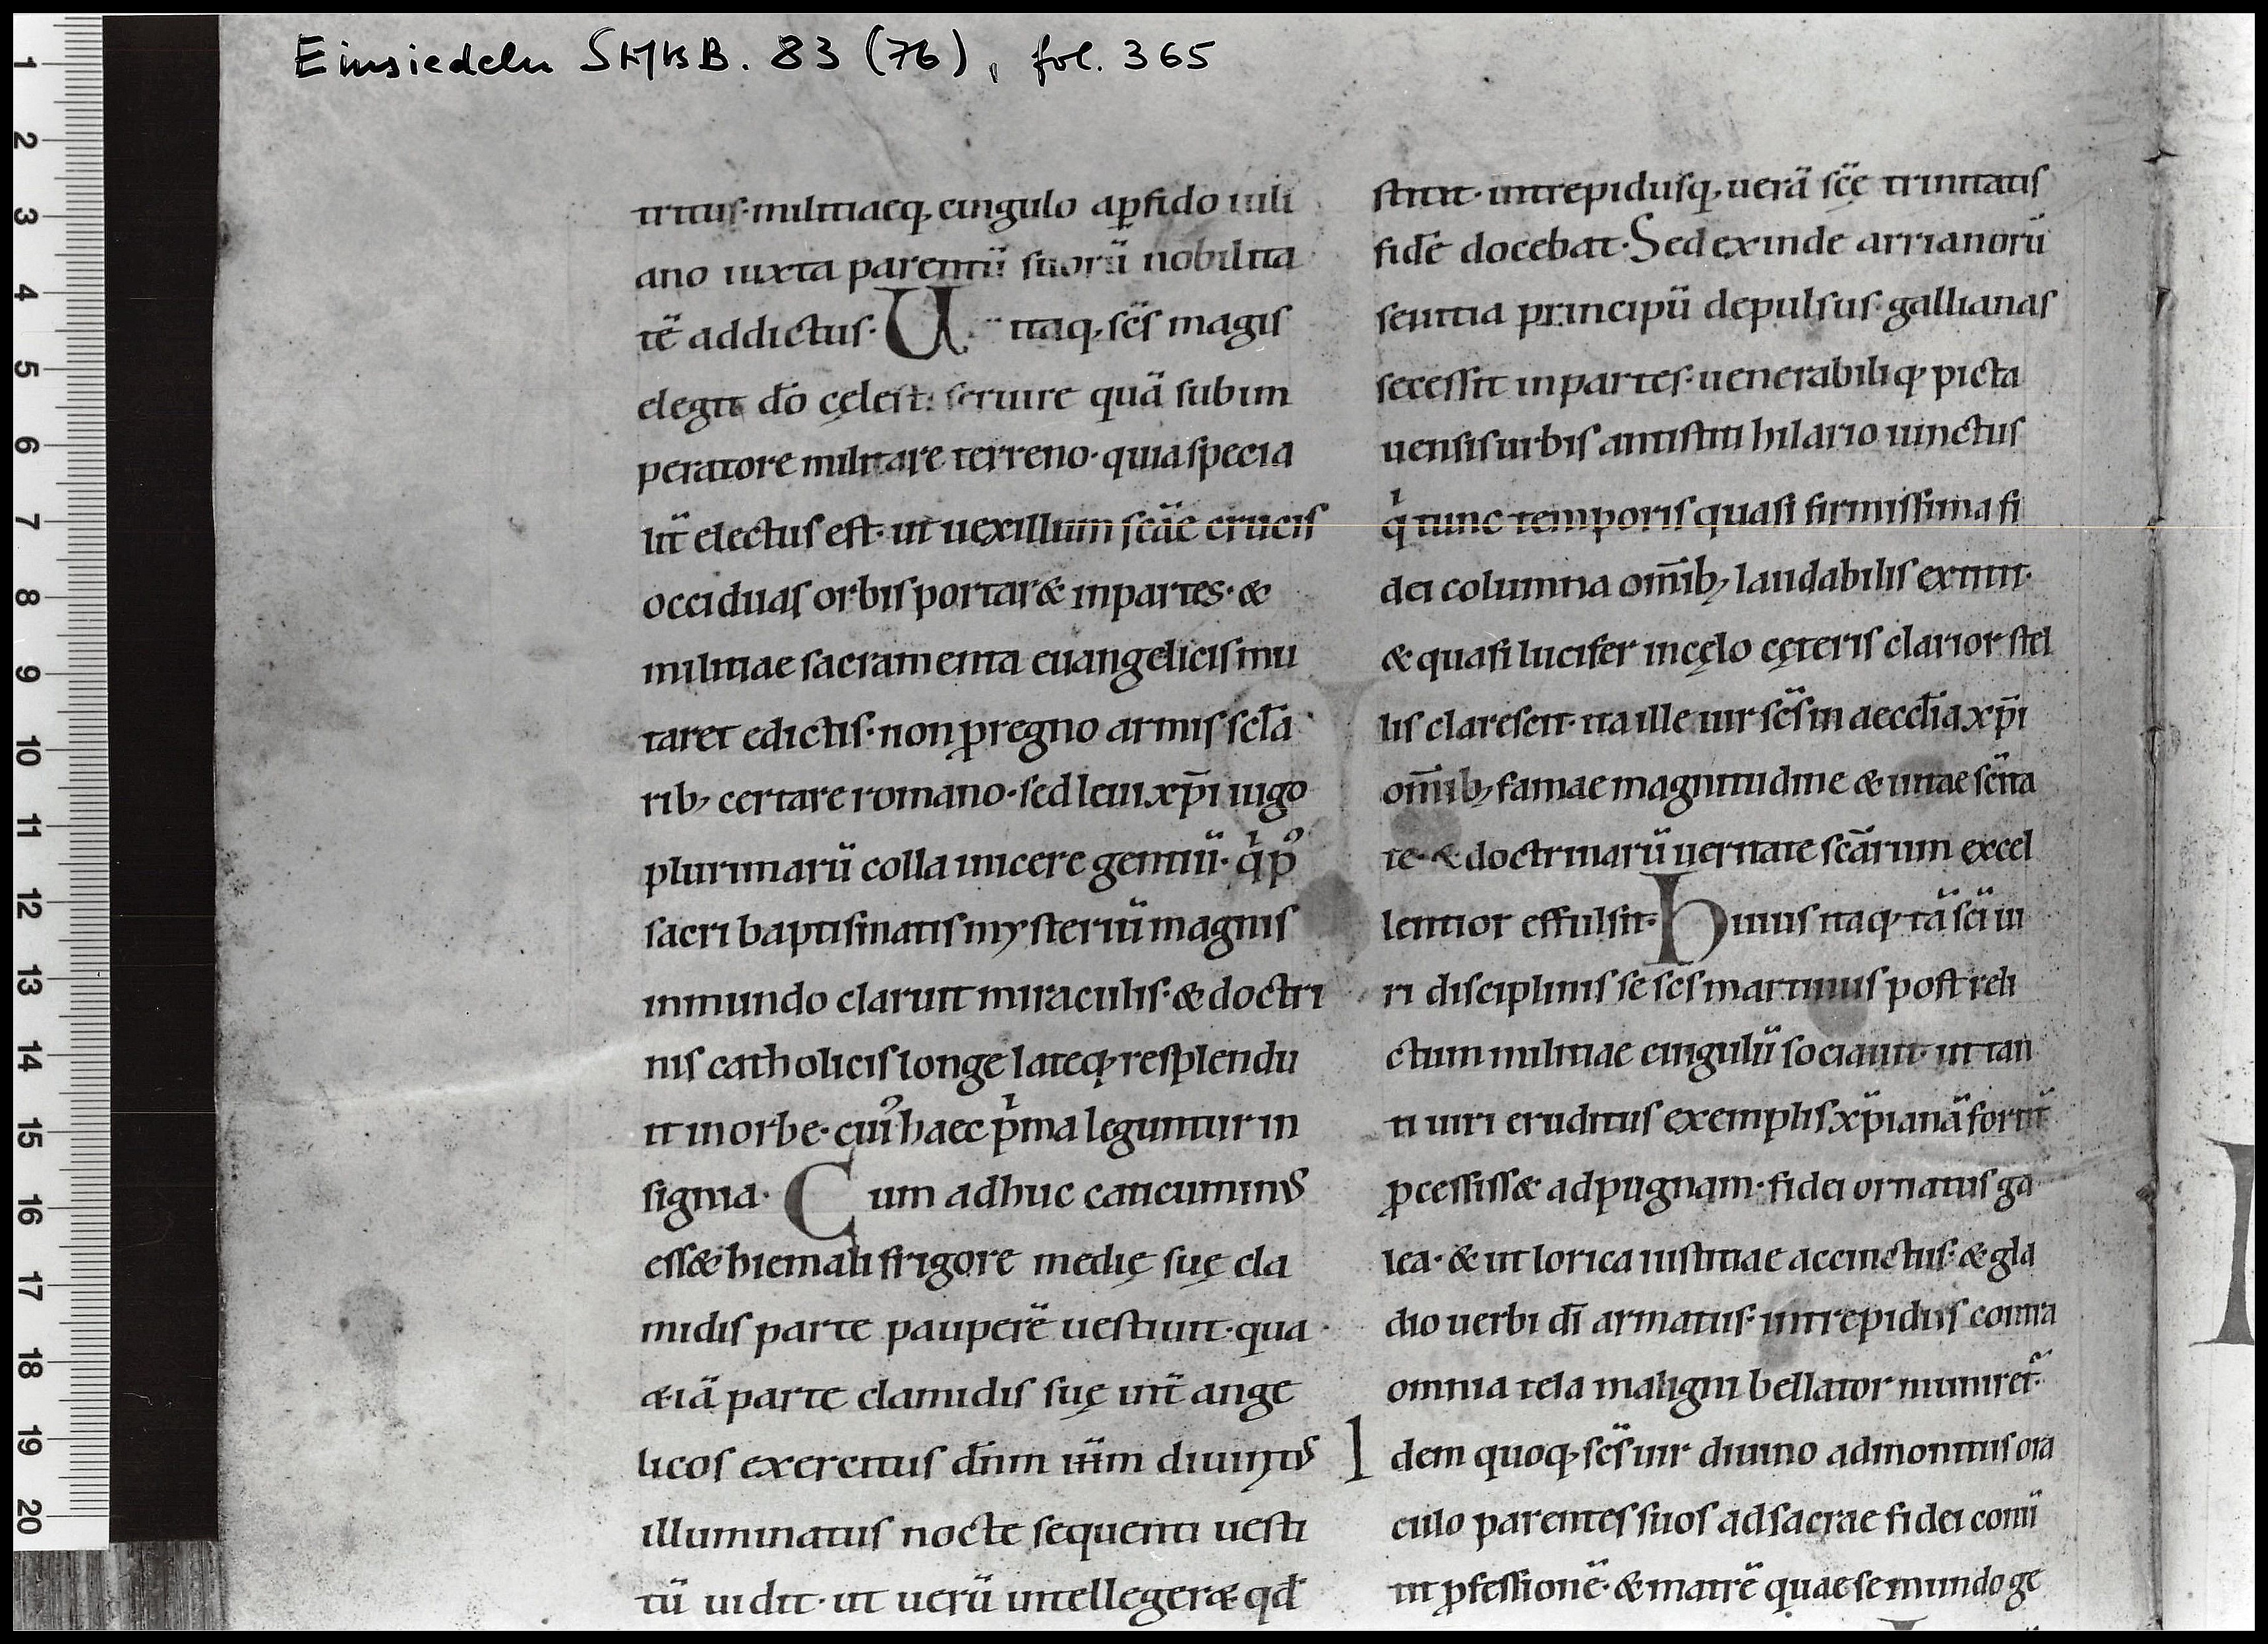 Einsiedeln StiftsB. 83 (76), fol. 365
tritus· militiaeq; cingulo ap̱fido iuli
ano iuxta parentū suorū nobilita
tē addictus· U itaq; sc̄s magis
elegit dō cęlesti seruire quā sub im
peratore militare terreno· quia specia
lit̄ electus est· ut uexillum scāe crucis
occiduas orbis portar& in partes· &
militiae sacramenta euangelicis mu
taret edictis· non ꝓ regno armis sēcla
rib; certare romano· sed leui xp̄i iugo
plurimarū colla uincere gentiū· qͥ pꝰ
sacri baptismatis mysteriū magnis
in mundo claruit miraculis· & doctri
nis catholicis longe lateq; resplendu
it in orbe· cuiꝰ haec pͥma leguntur in
signa· Cum adhuc caticuminꝰ
ess& hiemali frigore medię suę cla
midis parte pauperē uestiuit· qua
& iā parte clamidis suę int̄ ange
licos exercitus dn̄m nr̄m diuinitꝰ
illuminatus nocte sequenti uesti
tū uidit· ut uerū intelleger& qd̄
stitit· intrepidusq; uerā sc̄ę trinitatis
fidē docebat· Sed exinde arrianorū
seuitia principū depulsus· gallianas
secessit in partes· uenerabiliq; picta
uensis urbis antistiti hilario uinctus
qͥ tunc temporis quasi firmissima fi
dei columna om̄ib; laudabilis extitit·
& quasi lucifer in cęlo cęteris clarior stel
lis clarescit· ita ille uir sc̄s in aeccl̄ia xp̄i
om̄ib; famae magnitudine & uitae sc̄ita
te· & doctrinarū ueritate scārum excel
lentior effulsit· Huius itaq; tā sc̄i ui
ri disciplinis se scs martinus post reli
ctum militiae cingulū sociauit· ut tan
ti uiri eruditus exemplis xp̄ianā fortit̄
ꝓcessiss& ad pugnam· fidei ornatus ga
lea· & ut lorica iustitiae accinctus· & gla
dio uerbi dī armatus· intrepidus contra
omnia tela maligni bellator muniret᷑·
Idem quoq; sc̄s uir diuino admonitus ora
culo parentes suos ad sacrae fidei conū
tit ꝓfessionē· & matrē quae se mundo ge